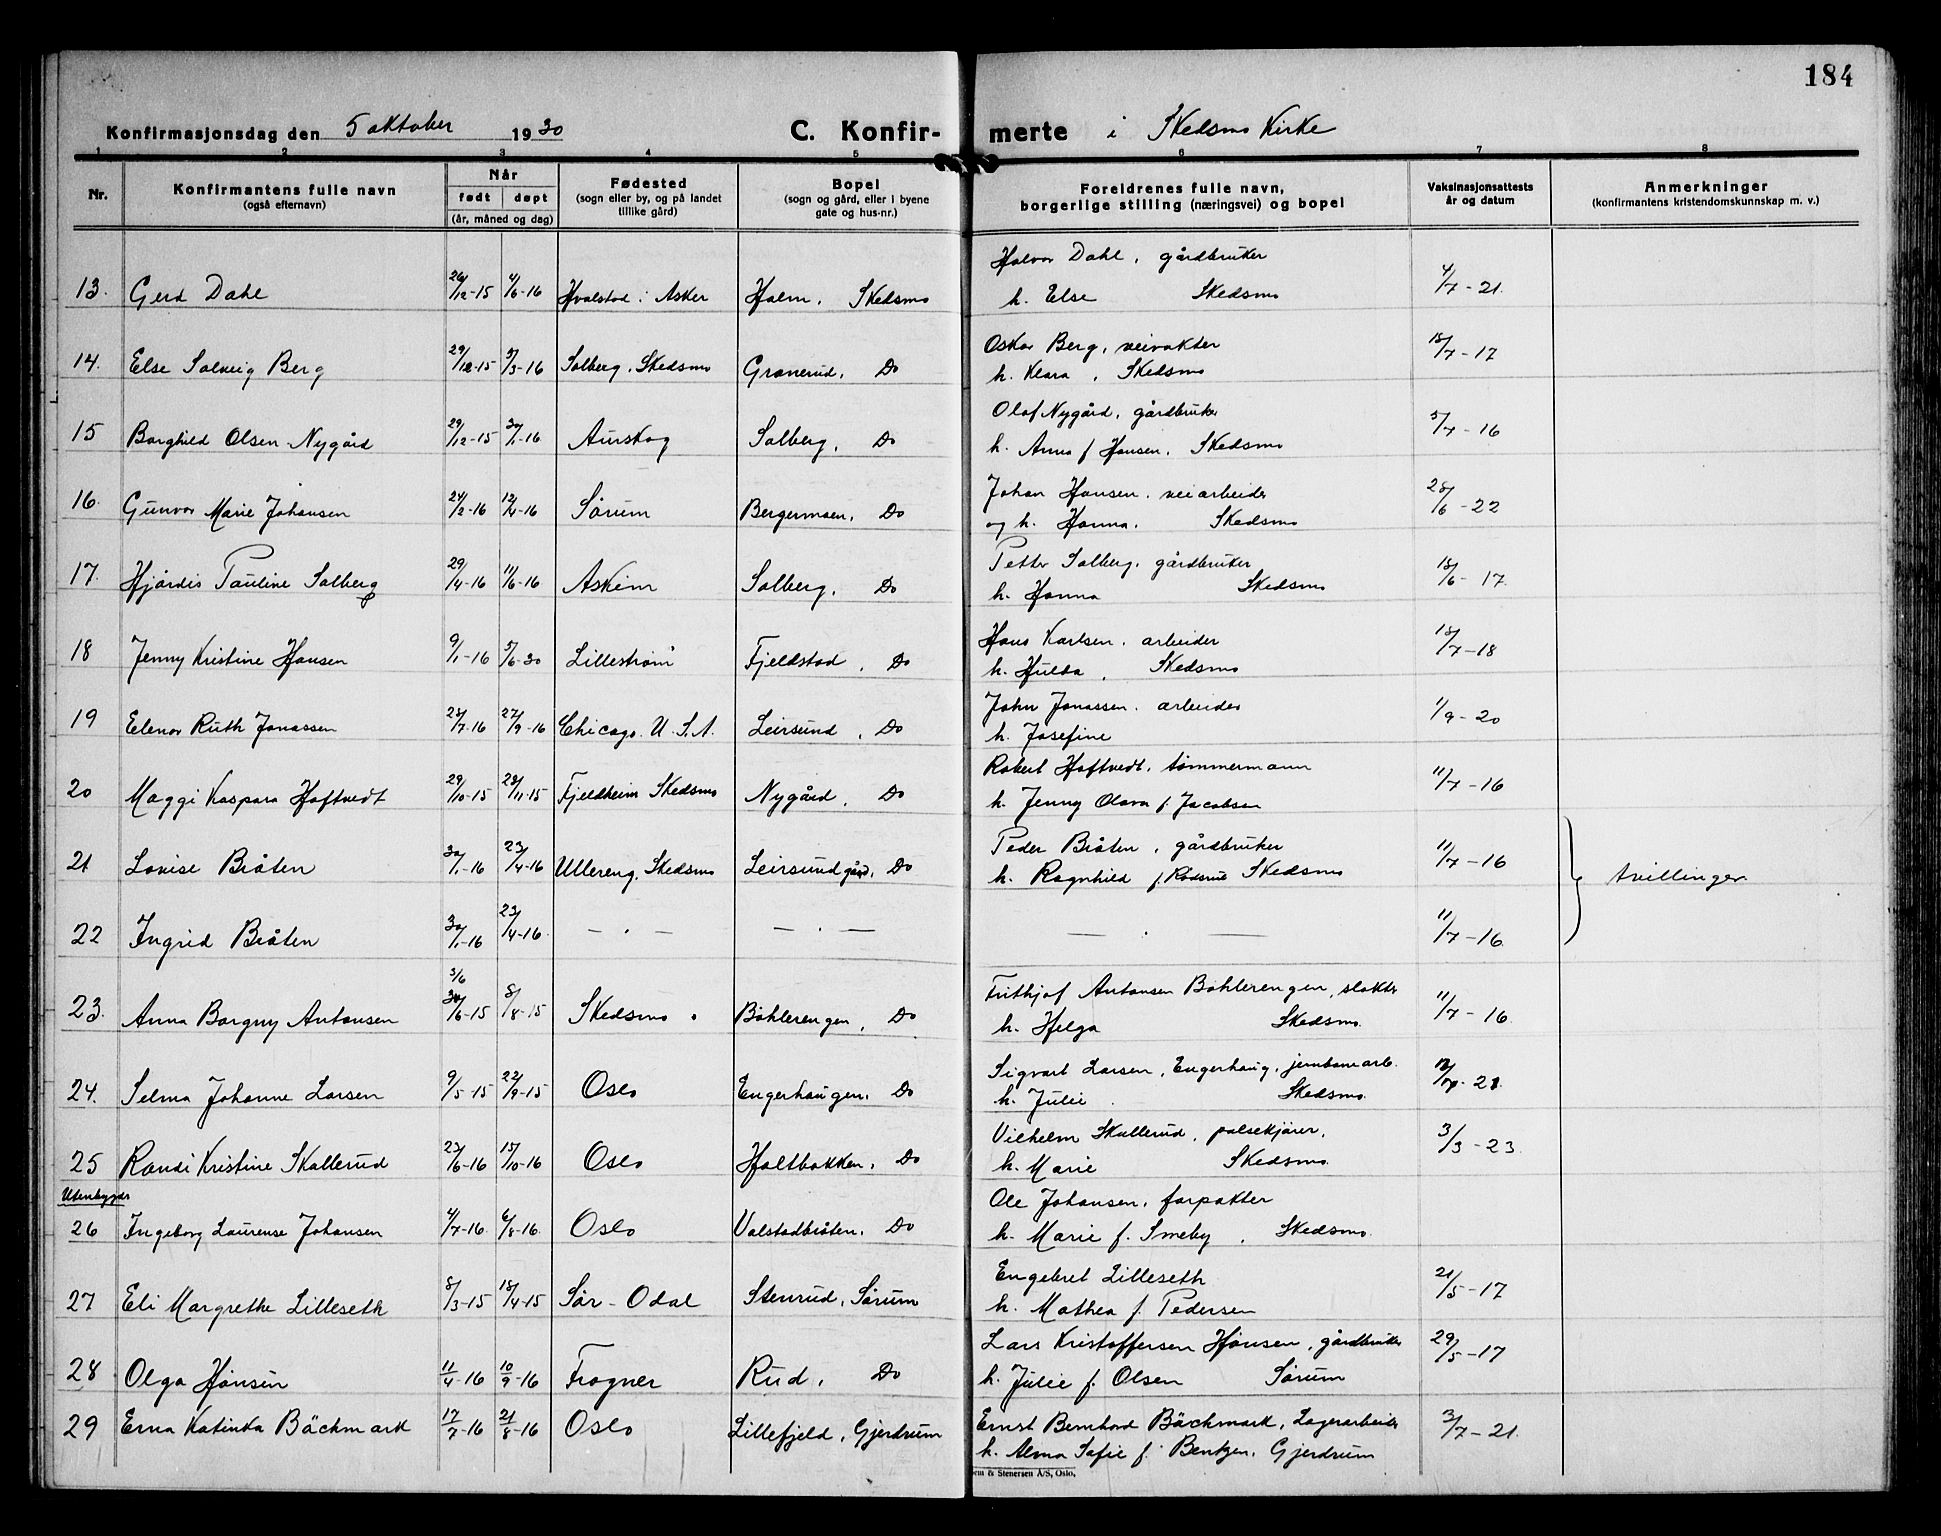 184
Konfirmasjonsdag den 5 oktober 1930 C. Konfir- merte i Skedsmo Kirke
1 2 3 4 5 6 7 8
Nr. Konfirmantens fulle navn (også efternavn) Når født døpt (år, måned og dag) Fødested (sogn eller by, og på landet tillike gård) Bopel (sogn og gård, eller i byene gate og hus-nr.) Foreldrenes fulle navn, borgerlige stilling (næringsvei) og bopel Vaksinasjonsattests år og datum Anmerkninger (konfirmantens kristendomskunnskap m. v.)
Halvor Dahl, gårdbruker
13. Gerd Dahl 26/12-15 4/6-16 Hvalstad i Asker Holm, Skedsmo h. Else Skedsmo 4/7-21.
Oskar Berg, veivokter
14. Else Solveig Berg 29/12-15 5/3-16 Solberg, Skedsmo Granerud, Do h. Klara, Skedsmo 18/7-17
Olaf Nygård, gårdbruker
15 Borghild Olsen-Nygård 29/12-15 30/1-16 Aurskog Solberg, Do h. Anna f. Hansen, Skedsmo 5/7-16
Johan Hansen, veiarbeider
16. Gunvor Marie Johansen 24/2-16 12/4-16 Sørum Bergermoen, Do og h. Hanna. Skedsmo 28/6-22
Petter Solberg, gårdbruker
17. Hjårdis Pauline Solberg 29/4-16 11/6-16 Askim Solberg, Do h. Hanna Skedsmo 18/6-17.
Hans Karlsen, arbeider
18 Jenny Kristine Hansen 9/1-16 5/6-30 Lillestrøm Fjeldstad, Do h. Hulda, Skedsmo 18/7-18
John Jonassen, arbeider
19 Elenor Ruth Jonassen 28/7-16 27/9-16 Chicago. U.S.A. Leirsund, Do h. Josefine 1/9-20
Robert Hoftvedt, tømmermann
20 Maggi Kaspara Hoftvedt 29/10-15 28/11-15 Fjeldheim Skedsmo Nygård, Do h. Jenny Olava f. Jacobsen 11/7-16
Peder Bråten, gårdbruker
21 Lovise Bråten 30/1-16 23/4-16 Ullereng, Skedsmo Leirsund gård, Do h. Ragnhild f. Skedsmo 11/7-16 tvillinger
22 Ingrid Bråten 30/1-16 23/4-16 — . — — . — — . — 11/7-16.
3/6
Frithjof Antonsen Bøhlerengen, slakter
23. Anna Borgny Antonsen 30/6-15 8/8-15 Skedsmo Bøhlerengen, Do h. Helga Skedsmo. 11/7-16.
Sigvart Larsen, Engerhaug, jernbanearb.
24. Selma Johanne Larsen 9/5-15 22/9-15 Oslo Engerhaugen. Do h. Julie Skedsmo.
Vilhelm Skallerud, pølsekjører,
25 Randi Kristine Skallerud 23/6-16 15/10-16 Oslo Holtbakken. Do h. Marie Skedsmo. 3/3-23.
Utenbygds
Ole Johansen, forpakter
26 Ingeborg Laurense Johansen 4/7-16 6/8-16. Oslo Valstadbråten. Do h. Marie f. Smeby, Skedsmo.
Engebret Lilleseth
27 Eli Margrethe Lilleseth 8/3-15 18/4-15 Sør-Odal Stenrud, Sørum h. Mathea f. Pedersen 21/5-17
Lars Kristoffersen Hønsen, gårdbruker
28 Olga Hønsen 11/4-16 10/9-16 Frogner Rud, Do h. Julie f. Olsen Sørum 29/5-17
Ernst Bernhard Bäckmark, Lagerarbeider
29 Erna Katinka Bäckmark 17/7-16 21/8-16 Oslo Lillefjeld, Gjerdrum h. Alma Sofie f. Bentzen. Gjerdrum 3/7-21.
& Stenersen A/S, Oslo,